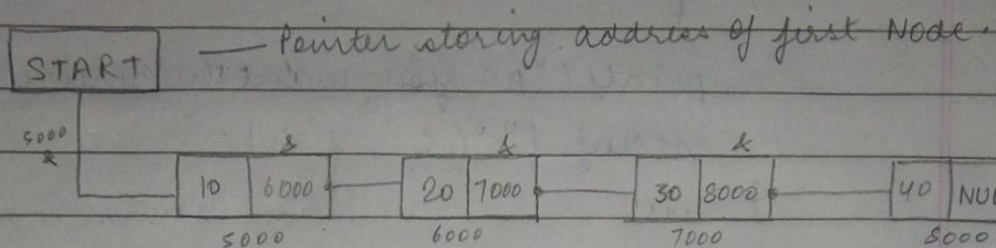 — Pointer storing address of first Node.
START
5000
&
& & &
10 6000 20 7000 30 8000 40 NUL
5000 6000 7000 8000